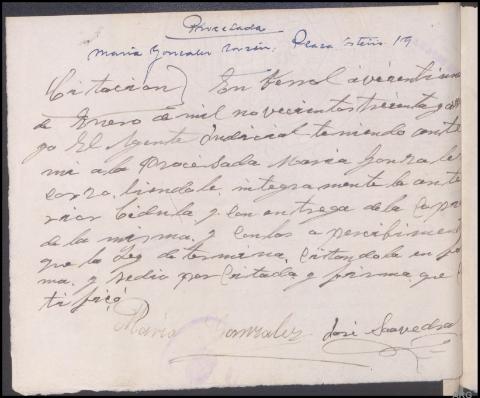 Procesada
Maria Gonzalez Plaza 19
Citacion) En Ferrol a veintiuno
de Enero de mil novecientos treinta y
yo El Agente Judicial teniendo ante
mi a la Procesada Maria Gonzalez
integramente la ante
rior Cédula y con entrega de la Copia
de la misma y con los apercibimient
que la Ley determina, Citandola en for
ma. y se dio por Citada y firma, que
tifico
Maria Gonzalez José Saavedra